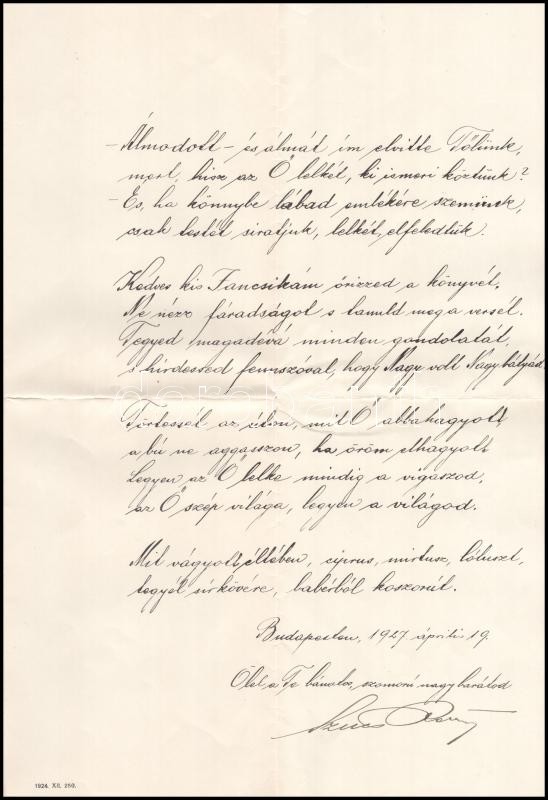 – Álmodott – és álmát ím elvitte Tőlünk,
mert, hisz az Ő lelkét, ki ismeri köztünk?
– És, ha könnybe lábad emlékére szemünk,
csak testét siratjuk, lelkét, elfeledtük.
Kedves kis Tancsikám őrizzed a könyvét,
Ne nézz fáradságot s tanuld meg a versét.
Tegyed magadévá minden gondolatát,
s hirdesred fennszóval, hogy Nagy volt Nagybátyád
Törtessél az úton, mit Ő abbahagyott
a bú ne aggasszon, ha öröm elhagyott
Legyen az Ő lelke mindig a vigaszod,
az Ő szép világa, legyen a világod.
Mit vágyott éltében, ciprus, mirtusz, lótuszt,
tegyél sírkövére, babérból koszorút.
Budapesten, 1927. április 19.
Ölel, a Te bánatos, szomorú nagybarátod
1924. XII. 280.